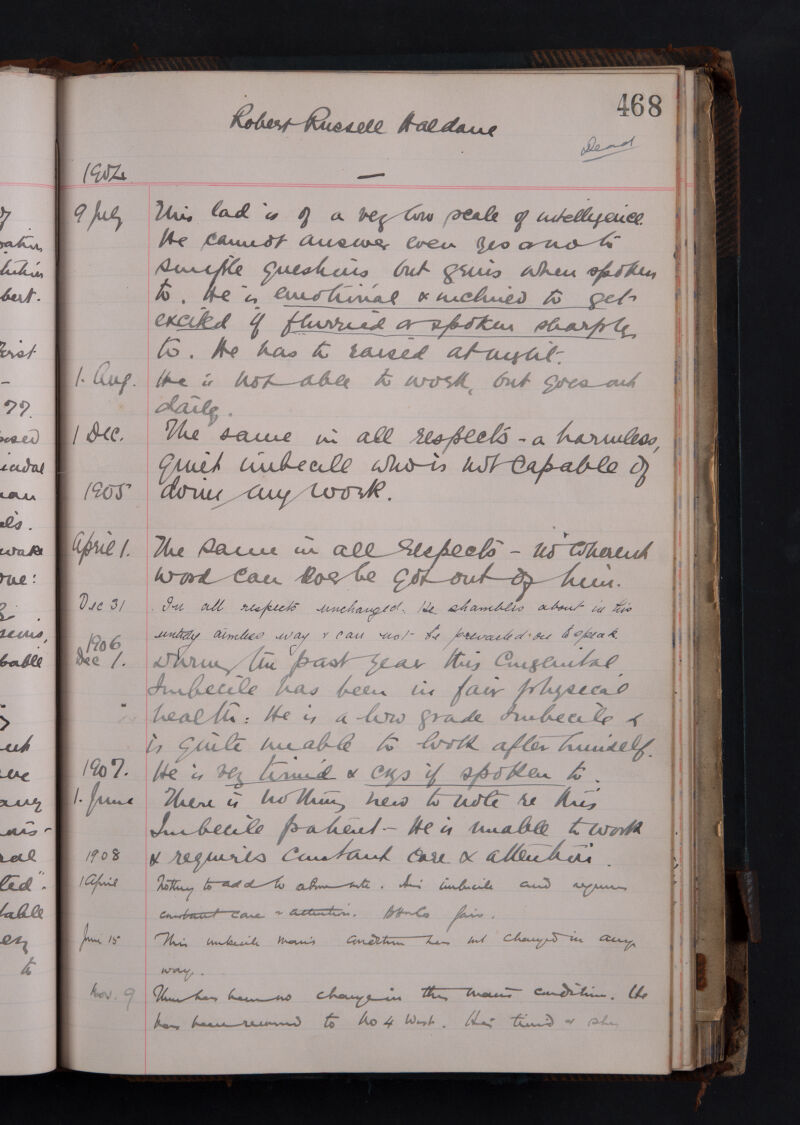 468
Robert Russell Haldane
Dead
1904
9 July This lad is of a very low scale of intelligence.
He cannot answer even yes or no to
simple questions but grins when spoken
to. He is emotional & inclined to get
excited if flurried or spoken sharply
to. He has to raised at night.
1. Aug. He is not able to work, but goes out
daily.
1 Dec. The same in all respects - a harmless,
quiet imbecile who is not capable of
1905 doing any work.
April 1. The same in all respects - no coherent
word can be got out of him.
Dec 31 In all respects unchanged. He shambles about in his
untidy aimless way & can not be prevailed on to speak
1906
Dec 1. During the past year this Congenital
Imbecile has been in fair physical
health: He is a low grade Imbecile &
is quite unable to look after himself.
1907. He is very timid & cries if spoken to.
1. June There is nothing new to note re this
Imbecile patient - He is unable to work
1908 & requires constant care & attention.
1 April Nothing to add to above note. Is imbecile and requires
constant care & attention. Health fair.
June 15 This imbecile man's condition has not changed in any
way.
Nov. 9 There has been no change in this man's condition. He
has been removed to No 4 West. He is timid &